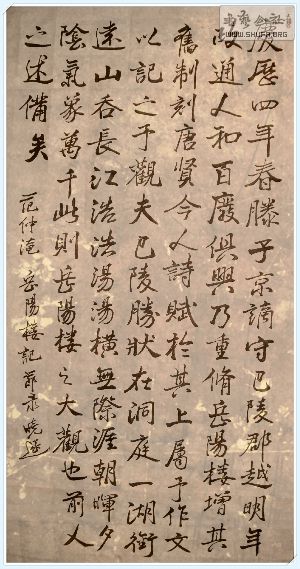 慶歷四年春滕子京謫守巴陵郡越明年
政通人和百廢俱興乃重脩岳陽樓增其
舊制刻唐賢今人詩賦於其上屬予作文
以記之予觀夫巴陵勝狀在洞庭一湖銜
遠山吞長江浩浩湯湯橫無際涯朝暉夕
陰氣象萬千此則岳陽楼之大觀也前人
之述備矣
范仲淹 岳陽楼記節录
WWW.SHUFA.ORG